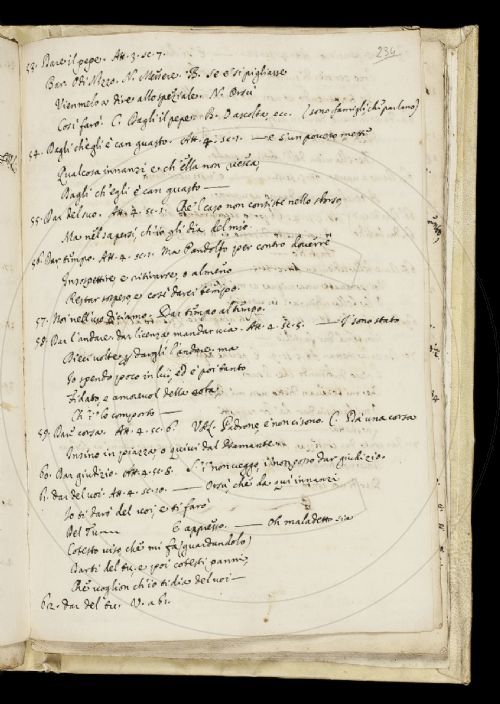 234
53. Dare il pepe. Att. 3. sc. 7.
Bar. Odi Mezzo. N. Messere. B. se e' si pigliasse
Vienmelo a dire allo speziale. N. Orsù
Così farò. C. Dagli il pepe. B. ascolta ecc. (sono famigli, che parlano)
54. Dagli ch'egli è can guasto. Att. 4. sc. 1. — e s'un povero
Qualcosa innanzi e ch'ella non riesca,
Dagli ch'egli è can guasto —
55. Dar del suo. Att. 4. sc. 1. Chè 'l caso non consiste nello
Ma nel sapersi, ch'io gli dia del mio.
56. Dar tempo. Att. 4. sc. 1. Ma Pandolfo per contro doverrà
Insospettire, e ritirarsi, o almeno
Restar sospeso, e così darci tempo.
57. Noi nell'uso diciamo. Dar tempo al tempo.
58. Dar l'andare. dar licenza, mandar via. Att. 4. sc. 5. — sono stato
Dieci volte per dargli l'andare. ma
Io spendo poco in lui, ed è poi tanto
Fidato, e amorevol della
Ch'i' lo comporto —
59. Dare corsa. Att. 4. sc. 6. Padrone, e' non ci sono. C. Dà una corsa
Insino in piazza, o quivi dal Diamante.
60. Dar giudizio. Att. 4. sc. 8. S'i' non veggo, i' non posso dar giudizio.
61. dar del voi. Att. 4. sc. 10. — Orsù, che da qui innanzi
Io ti darò del voi, e ti farò
Del E appresso. — Oh maladetto sia
Cotesto viso, che mi fa (guardandolo)
Darti del tu, e poi cotesti panni,
Che voglion ch'io ti dia del voi —
62. dar del tu. V. a 61.